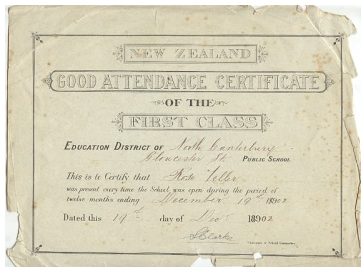 NEW ZEALAND
GOOD ATTENDANCE CERTIFICATE
OF THE
FIRST CLASS
EDUCATION DISTRICT OF North Canterbury
Gloucester St. PUBLIC SCHOOL
This is to Certify that Rose
was present every time the School was open during the period of
twelve months ending December 19th 18902
Dated this 19th day of Dec 18902
Chairman of School Committee